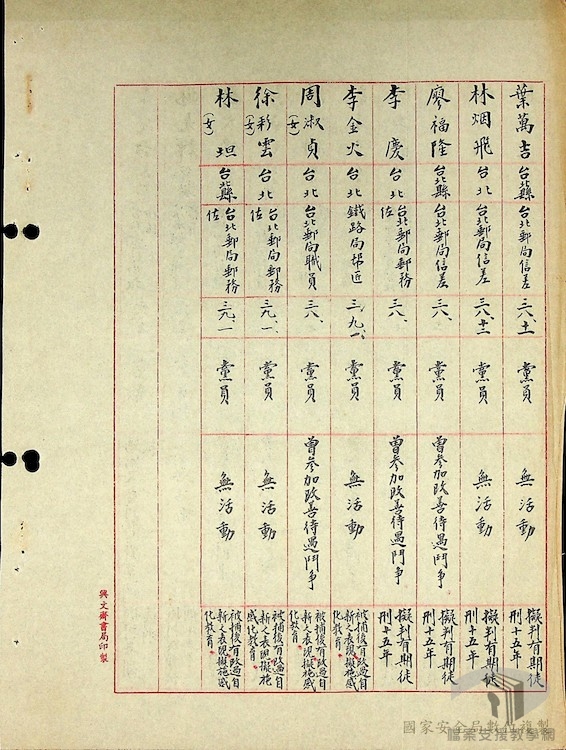 葉萬吉 台北縣 台北郵局信差 三八、十一 黨員 無活動 擬判有期徒刑十五年
林烟飛 台北 台北郵局信差 三八、十二 黨員 無活動 擬判有期徒刑十五年
廖福隆 台北縣 台北郵局信差 三八、 黨員 曾參加改善待遇鬥爭 擬判有期徒刑十五年
李慶 台北 台北郵局郵務佐 三八、 黨員 曾參加改善待遇鬥爭 擬判有期徒刑十五年
李金火 台北 鐵路局 三、九、一、 黨員 無活動 被捕後有改過自新之表現擬施感化教育。
周淑貞(女) 台北 台北郵局職員 三八、 黨員 曾參加改善待遇鬥爭 被捕後有改過自新之表現擬施感化教育。
徐彩雲(女) 台北 台北郵局郵務佐 三九、一、 黨員 無活動 被捕後有改過自新之表現擬施感化教育。
林坦(女) 台北縣 台北郵局郵務佐 三九、一 黨員 無活動 被捕後有改過自新之表現擬施感化教育。
興文齋書局印製
國家安全局數位複製
檔案支援教學網